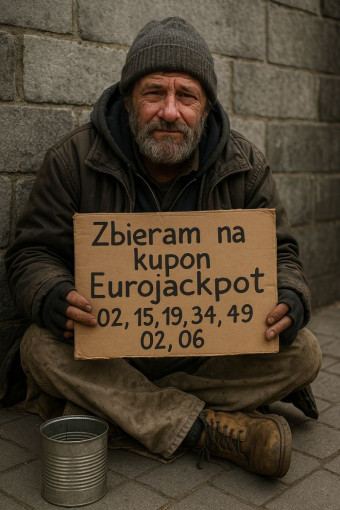 Zbieram na
kupon
Eurojackpot
02, 15, 19, 34, 49
02, 06